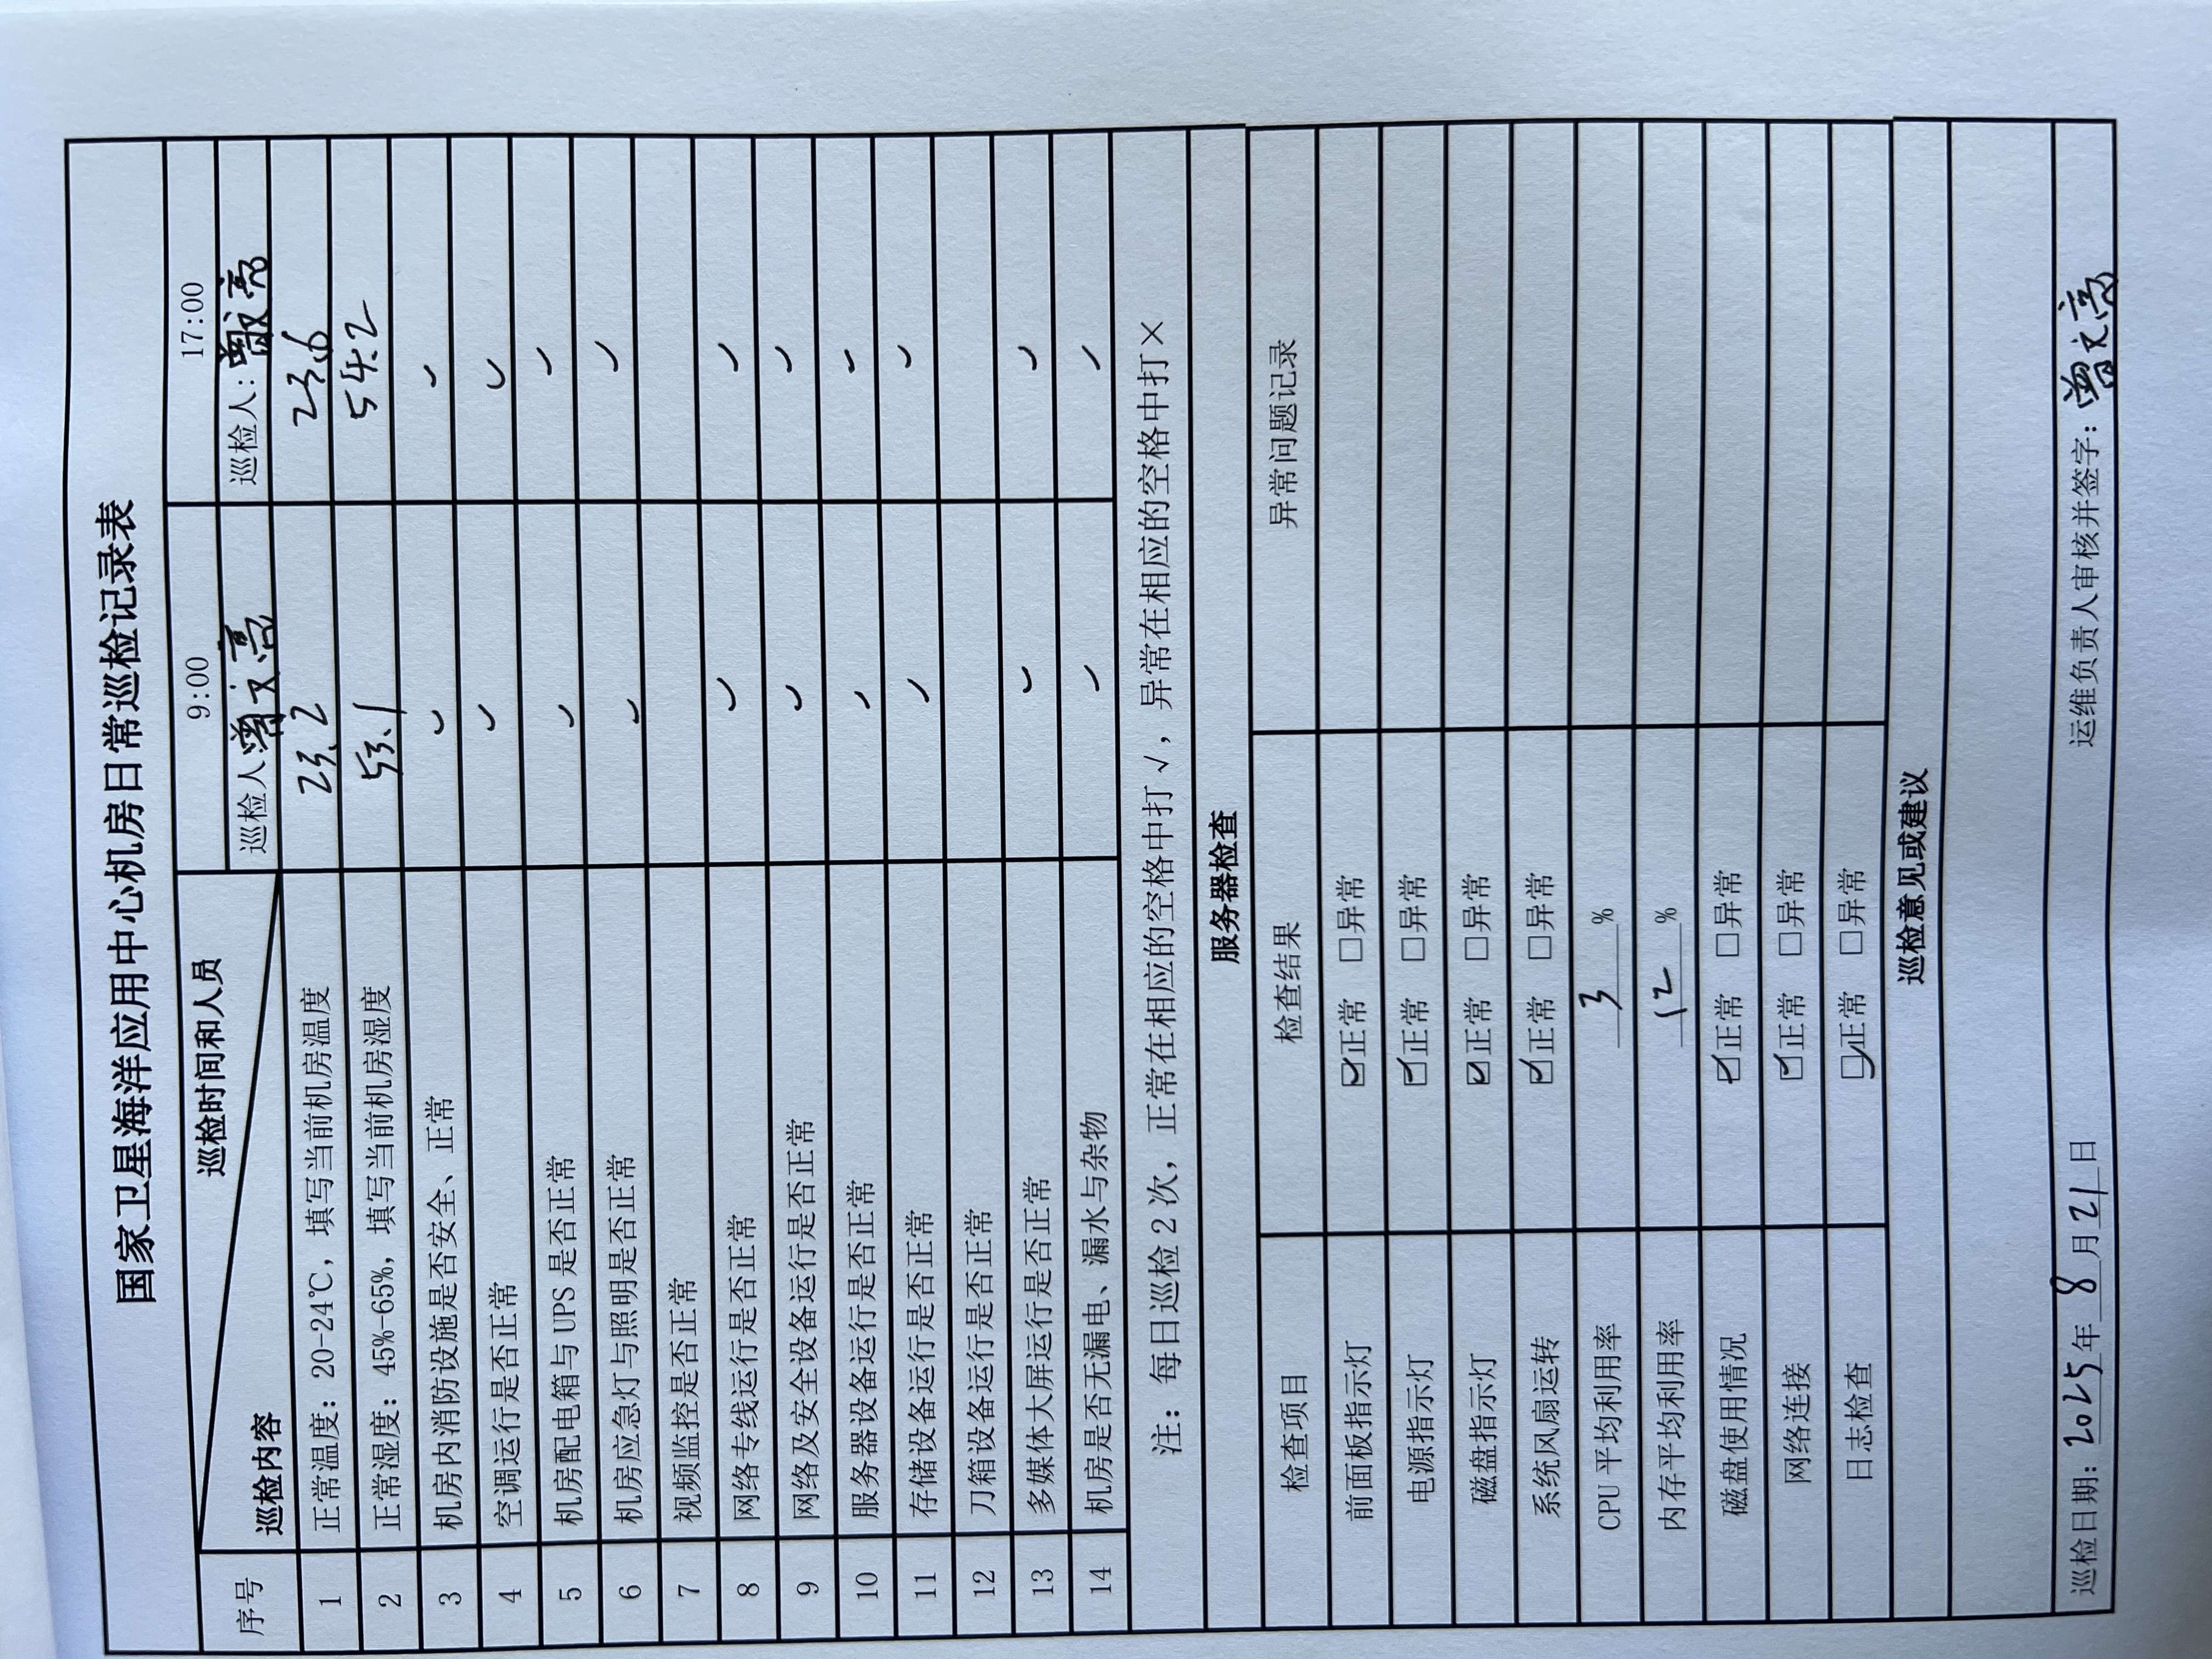 国家卫星海洋应用中心机房日常巡检记录表
序号 巡检内容 巡检时间和人员 9:00 17:00
巡检人 曾文亮 巡检人: 曾文亮
1 正常温度: 20-24℃, 填写当前机房温度 23.2 23.6
2 正常湿度: 45%-65%, 填写当前机房湿度 53.1 54.2
3 机房内消防设施是否安全、正常 ✓ ✓
4 空调运行是否正常 ✓ ✓
5 机房配电箱与 UPS 是否正常 ✓ ✓
6 机房应急灯与照明是否正常 ✓ ✓
7 视频监控是否正常
8 网络专线运行是否正常 ✓ ✓
9 网络及安全设备运行是否正常 ✓ ✓
10 服务器设备运行是否正常 ✓ ✓
11 存储设备运行是否正常 ✓ ✓
12 刀箱设备运行是否正常
13 多媒体大屏运行是否正常 ✓ ✓
14 机房是否无漏电、漏水与杂物 ✓ ✓
注: 每日巡检 2 次, 正常在相应的空格中打 √, 异常在相应的空格中打×
服务器检查
检查项目 检查结果 异常问题记录
前面板指示灯 ☑正常 □异常
电源指示灯 ☑正常 □异常
磁盘指示灯 ☑正常 □异常
系统风扇运转 ☑正常 □异常
CPU 平均利用率 3 %
内存平均利用率 12 %
磁盘使用情况 ☑正常 □异常
网络连接 ☑正常 □异常
日志检查 ☑正常 □异常
巡检意见或建议
巡检日期: 2025 年 8 月 21 日 运维负责人审核并签字: 曾文亮